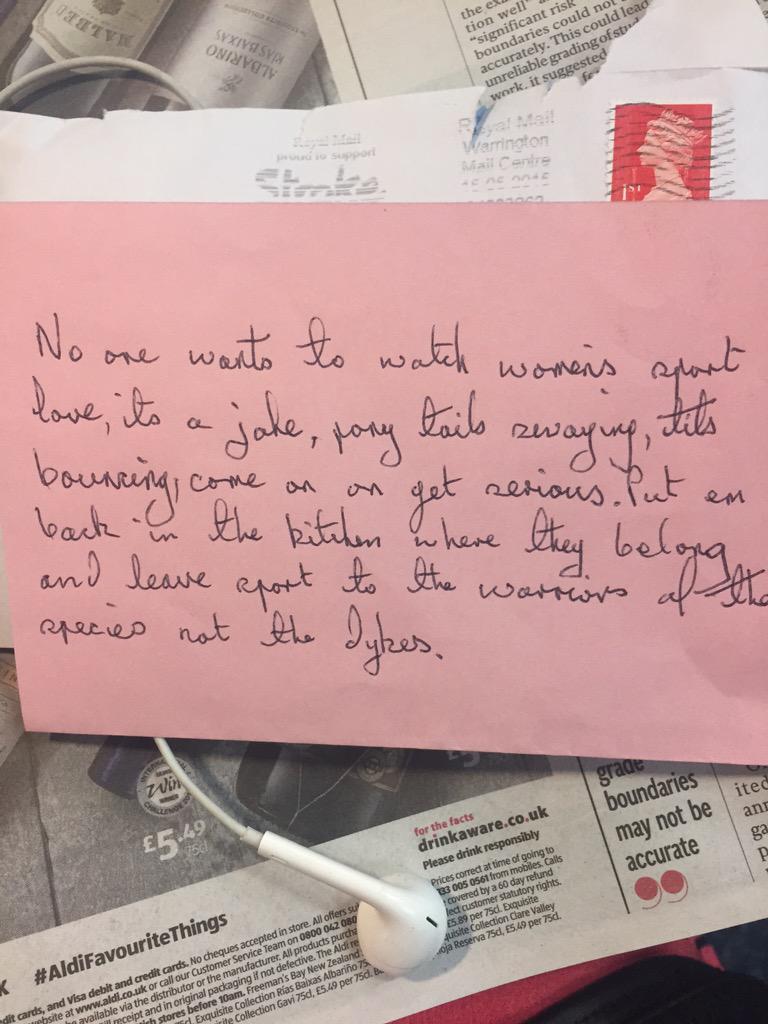 MALBEC
ALBARIÑO
RIAS BAIXAS
tion well"
"significant risk
boundaries could not
accurately. This could lead
unreliable grading of stud
work, it suggested
Royal Mail
proud to support
Stroke
Royal Mail
Warrington
Mail Centre
1ST
No one wants to watch women's sport
love, its a joke, pony tails swaying, tits
bouncing, come on on get serious. Put em
back in the kitchen where they belong
and leave sport to the warriors of the
species not the Dykes.
£5.49
75cl
for the facts
drinkaware.co.uk
Please drink responsibly
Prices correct at time of going to
33 005 0561 from mobiles. Calls
covered by a 60 day refund
customer statutory rights.
£5.89 per 75cl. Exquisite
quisite Collection Clare Valley
oja Reserva 75cl, £5.49 per 75cl.
grade
boundaries
may not be
accurate
#AldiFavouriteThings
dit cards, and Visa debit and credit cards. No cheques accepted in store. All offers
website at www.aldi.co.uk or call our Customer Service Team on 0800 042 080
be available via the distributor or the manufacturer. All products
will receipt and in original packaging if not defective. The Aldi
stores before 10am. Freeman's Bay New Zealand
Exquisite Collection Rias Baixas Albariño 75cl
Exquisite Collection Gavi 75cl, £5.49 per 75cl.